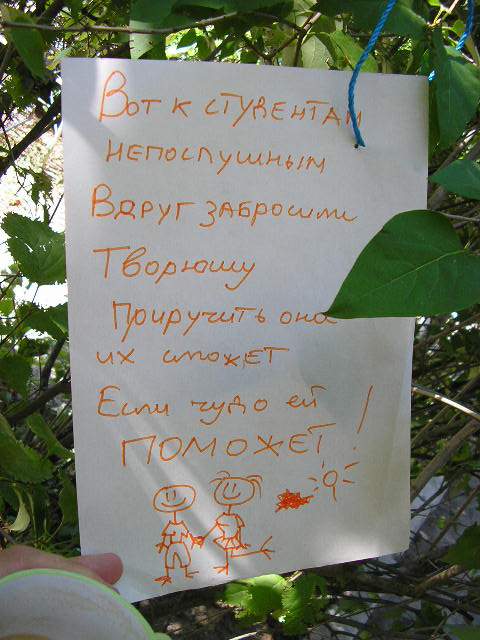 Вот к студентам
непослушным
Вдруг забросили
Творюшу
Приручить она
их сможет
Если чудо ей
ПОМОЖЕТ!